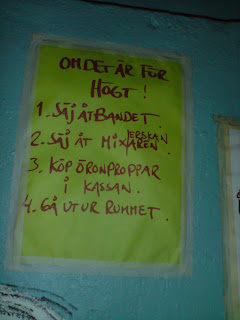 OM DET ÄR FÖR
HÖGT!
1. SÄJ ÅT BANDET.
2. SÄJ ÅT MIXERSKAN/AREN.
3. KÖP ÖRONPROPPAR
I KASSAN.
4. GÅ UT UR RUMMET.